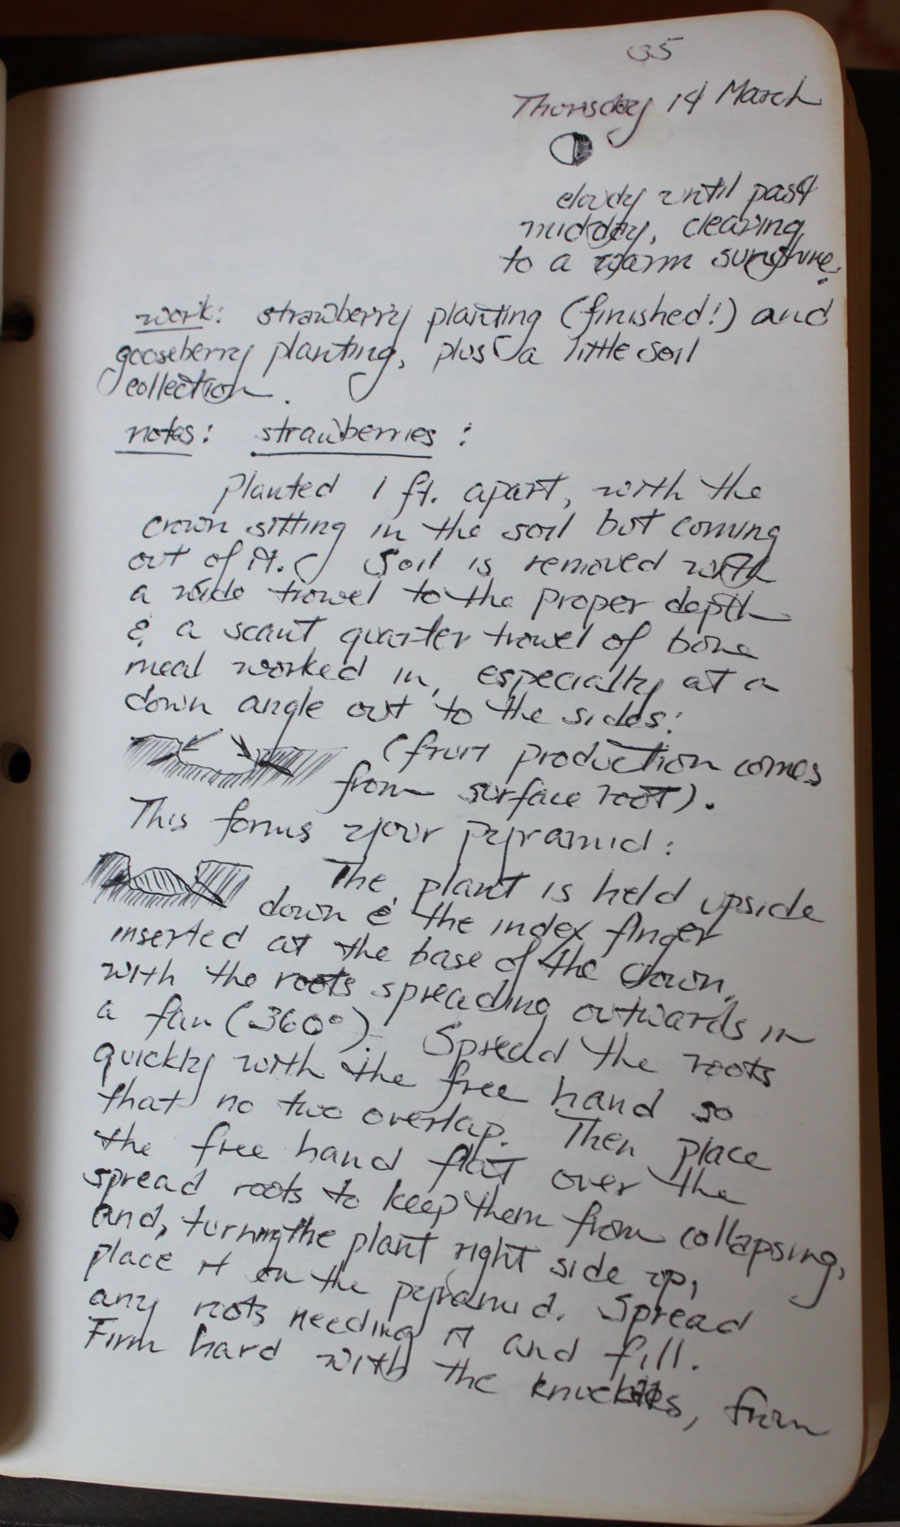 35
Thursday 14 March
cloudy until past
midday, clearing
to a warm sunshine.
work: strawberry planting (finished!) and
gooseberry planting, plus a little soil
collection.
notes: strawberries:
planted 1 ft. apart, with the
crown sitting in the soil but coming
out of it. Soil is removed with
a wide trowel to the proper depth
& a scant quarter trowel of bone
meal worked in, especially at a
down angle out to the sides:
(fruit production comes
from surface root).
This forms your pyramid:
The plant is held upside
down & the index finger
inserted at the base of the crown,
with the roots spreading outwards in
a fan (360°). Spread the roots
quickly with the free hand so
that no two overlap. Then place
the free hand flat over the
spread roots to keep them from collapsing,
and, turning the plant right side up,
place it on the pyramid. Spread
any roots needing it and fill.
Firm hard with the knuckles, from